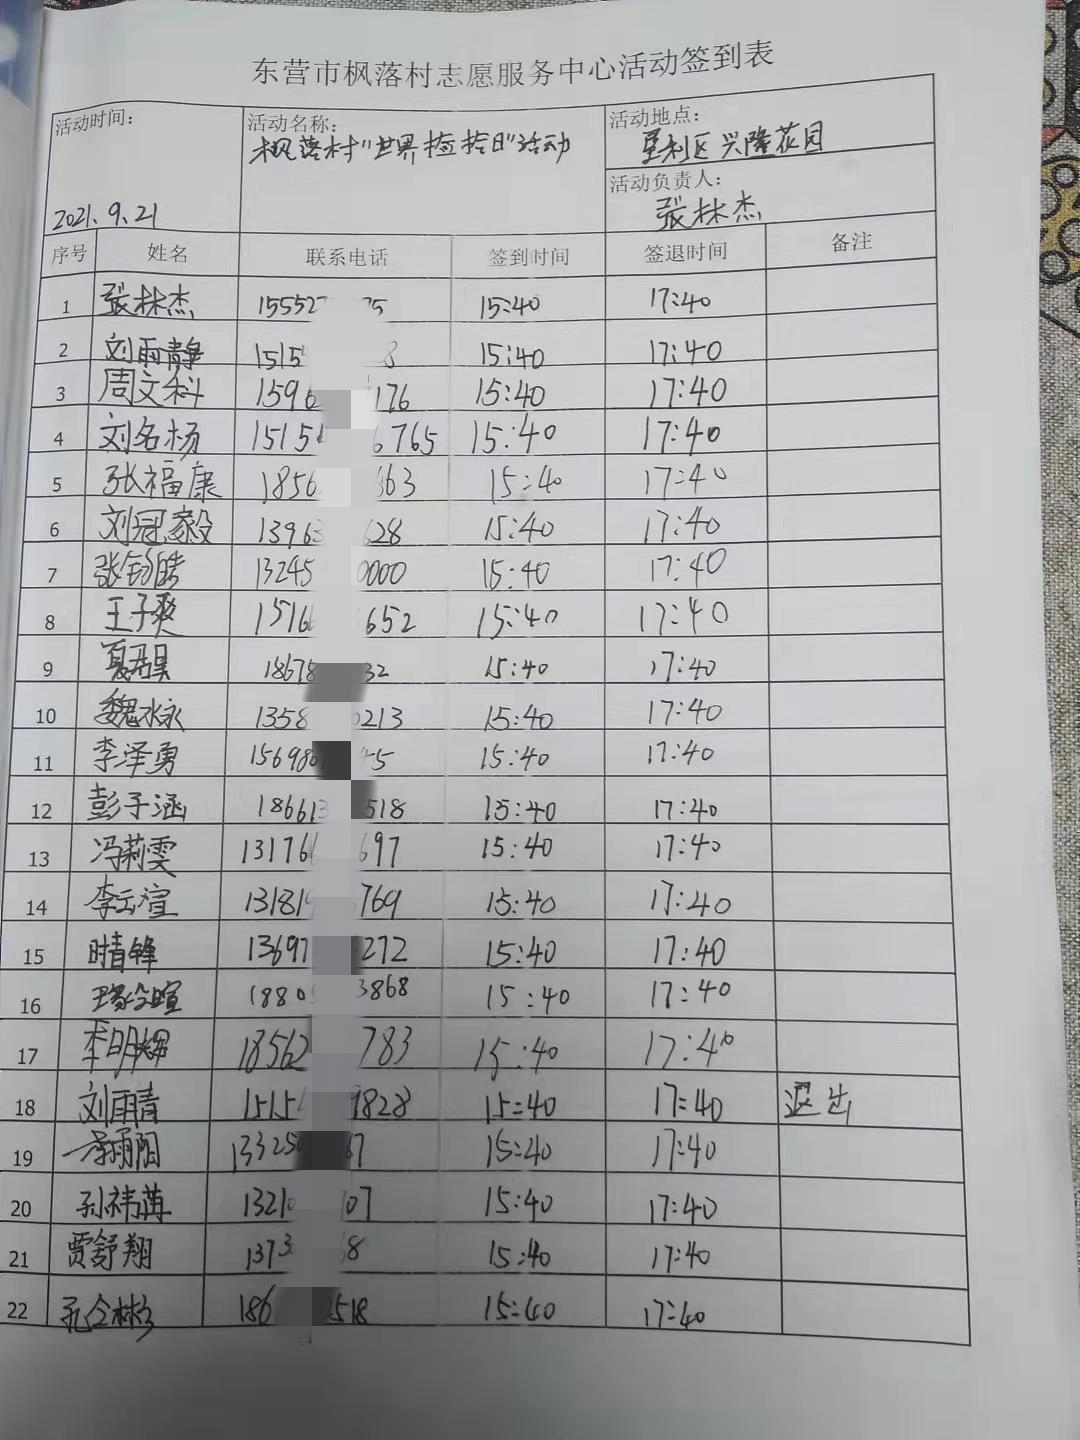 东营市枫落村志愿服务中心活动签到表
活动时间： 活动名称： 活动地点：
枫落村"世界 日"活动 垦利区兴隆花园
活动负责人：
2021.9.21 张林杰
序号 姓名 联系电话 签到时间 签退时间 备注
1 张林杰 15552 75 15:40 17:40
2 刘雨静 1515 8 15:40 17:40
3 周文科 1596 176 15:40 17:40
4 刘名杨 1515 6765 15:40 17:40
5 张福康 1856 663 15:40 17:40
6 刘冠毅 1396 628 15:40 17:40
7 13245 0000 15:40 17:40
8 王子爽 1516 652 15:40 17:40
9 1867 32 15:40 17:40
10 魏冰永 1358 0213 15:40 17:40
11 李泽勇 15698 45 15:40 17:40
12 彭子涵 18661 518 15:40 17:40
13 冯莉雯 13176 697 15:40 17:40
14 李云渲 13181 769 15:40 17:40
15 时青锋 1369 272 15:40 17:40
16 1880 3868 15:40 17:40
17 李明辉 18562 783 15:40 17:40
18 刘雨青 1515 9828 15:40 17:40 退出
19 13325 67 15:40 17:40
20 1321 07 15:40 17:40
21 贾舒翔 1373 68 15:40 17:40
22 186 2518 15:40 17:40